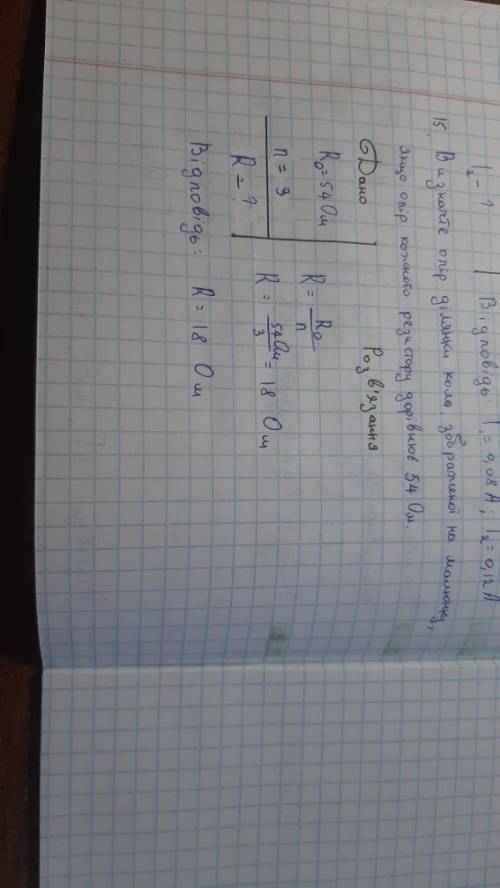 I₂ – ?
Відповідь: I₁ = 0,08 А; I₂ = 0,12 А
15. Визначте опір ділянки кола зображеної на малюнку,
якщо опір кожного резистору дорівнює 54 Ом.
Дано
R₀ = 54 Ом
n = 3
R – ?
Розв'язання
R = R₀/n
R = 54 Ом/3 = 18 Ом
Відповідь: R = 18 Ом